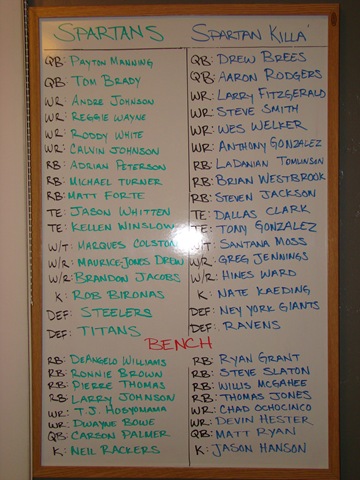 SPARTANS SPARTAN KILLA'
QB: PAYTON MANNING QB: DREW BREES
QB: TOM BRADY QB: AARON RODGERS
WR: ANDRE JOHNSON WR: LARRY FITZGERALD
WR: REGGIE WAYNE WR: STEVE SMITH
WR: RODDY WHITE WR: WES WELKER
WR: CALVIN JOHNSON WR: ANTHONY GONZALEZ
RB: ADRIAN PETERSON RB: LADANIAN TOMLINSON
RB: MICHAEL TURNER RB: BRIAN WESTBROOK
RB: MATT FORTE RB: STEVEN JACKSON
TE: JASON WHITTEN TE: DALLAS CLARK
TE: KELLEN WINSLOW TE: TONY GONZALEZ
W/T: MARQUES COLSTON W/T: SANTANA MOSS
W/R: MAURICE-JONES DREW W/R: GREG JENNINGS
W/R: BRANDON JACOBS W/R: HINES WARD
K: ROB BIRONAS K: NATE KAEDING
DEF: STEELERS DEF: NEY YORK GIANTS
DEF: TITANS DEF: RAVENS
BENCH
RB: DEANGELO WILLIAMS RB: RYAN GRANT
RB: RONNIE BROWN RB: STEVE SLATON
RB: PIERRE THOMAS RB: WILLIS MCGAHEE
RB: LARRY JOHNSON RB: THOMAS JONES
WR: T.J. HOSYOMAMA WR: CHAD OCHOCINCO
WR: DWAYNE BOWE WR: DEVIN HESTER
QB: CARSON PALMER QB: MATT RYAN
K: NEIL RACKERS K: JASON HANSON